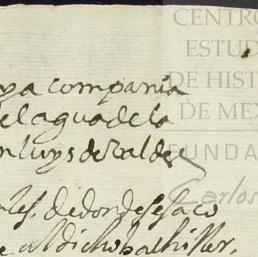 CENTRO
ESTUD
DE HIST
DE MEX
FUNDA
Carlos
ya compania
el agua de la
n luys de valdes
les. de donde se saco
al dicho bachiller.